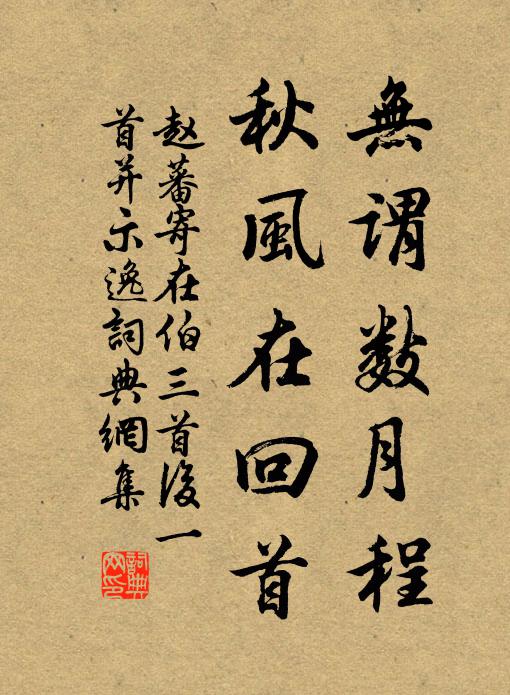 無謂数月程
秋風在回首
赵蕃寄在伯三首後一
首并示逸詞典網集
詞典網印